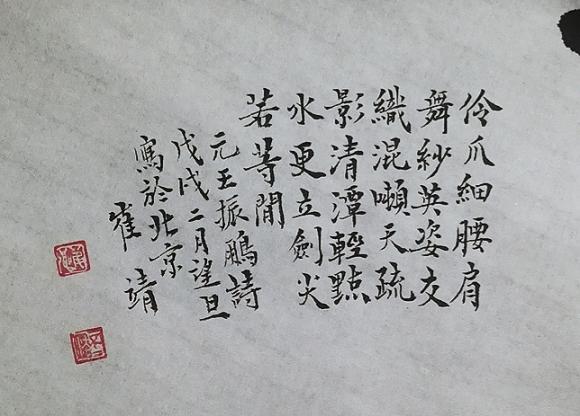 伶爪細腰肩
舞紗英姿交
織混天疏
影清潭輕點
水更立劍尖
若等閒
元王振鵬詩
戊戌二月望旦
寫於北京
崔靖